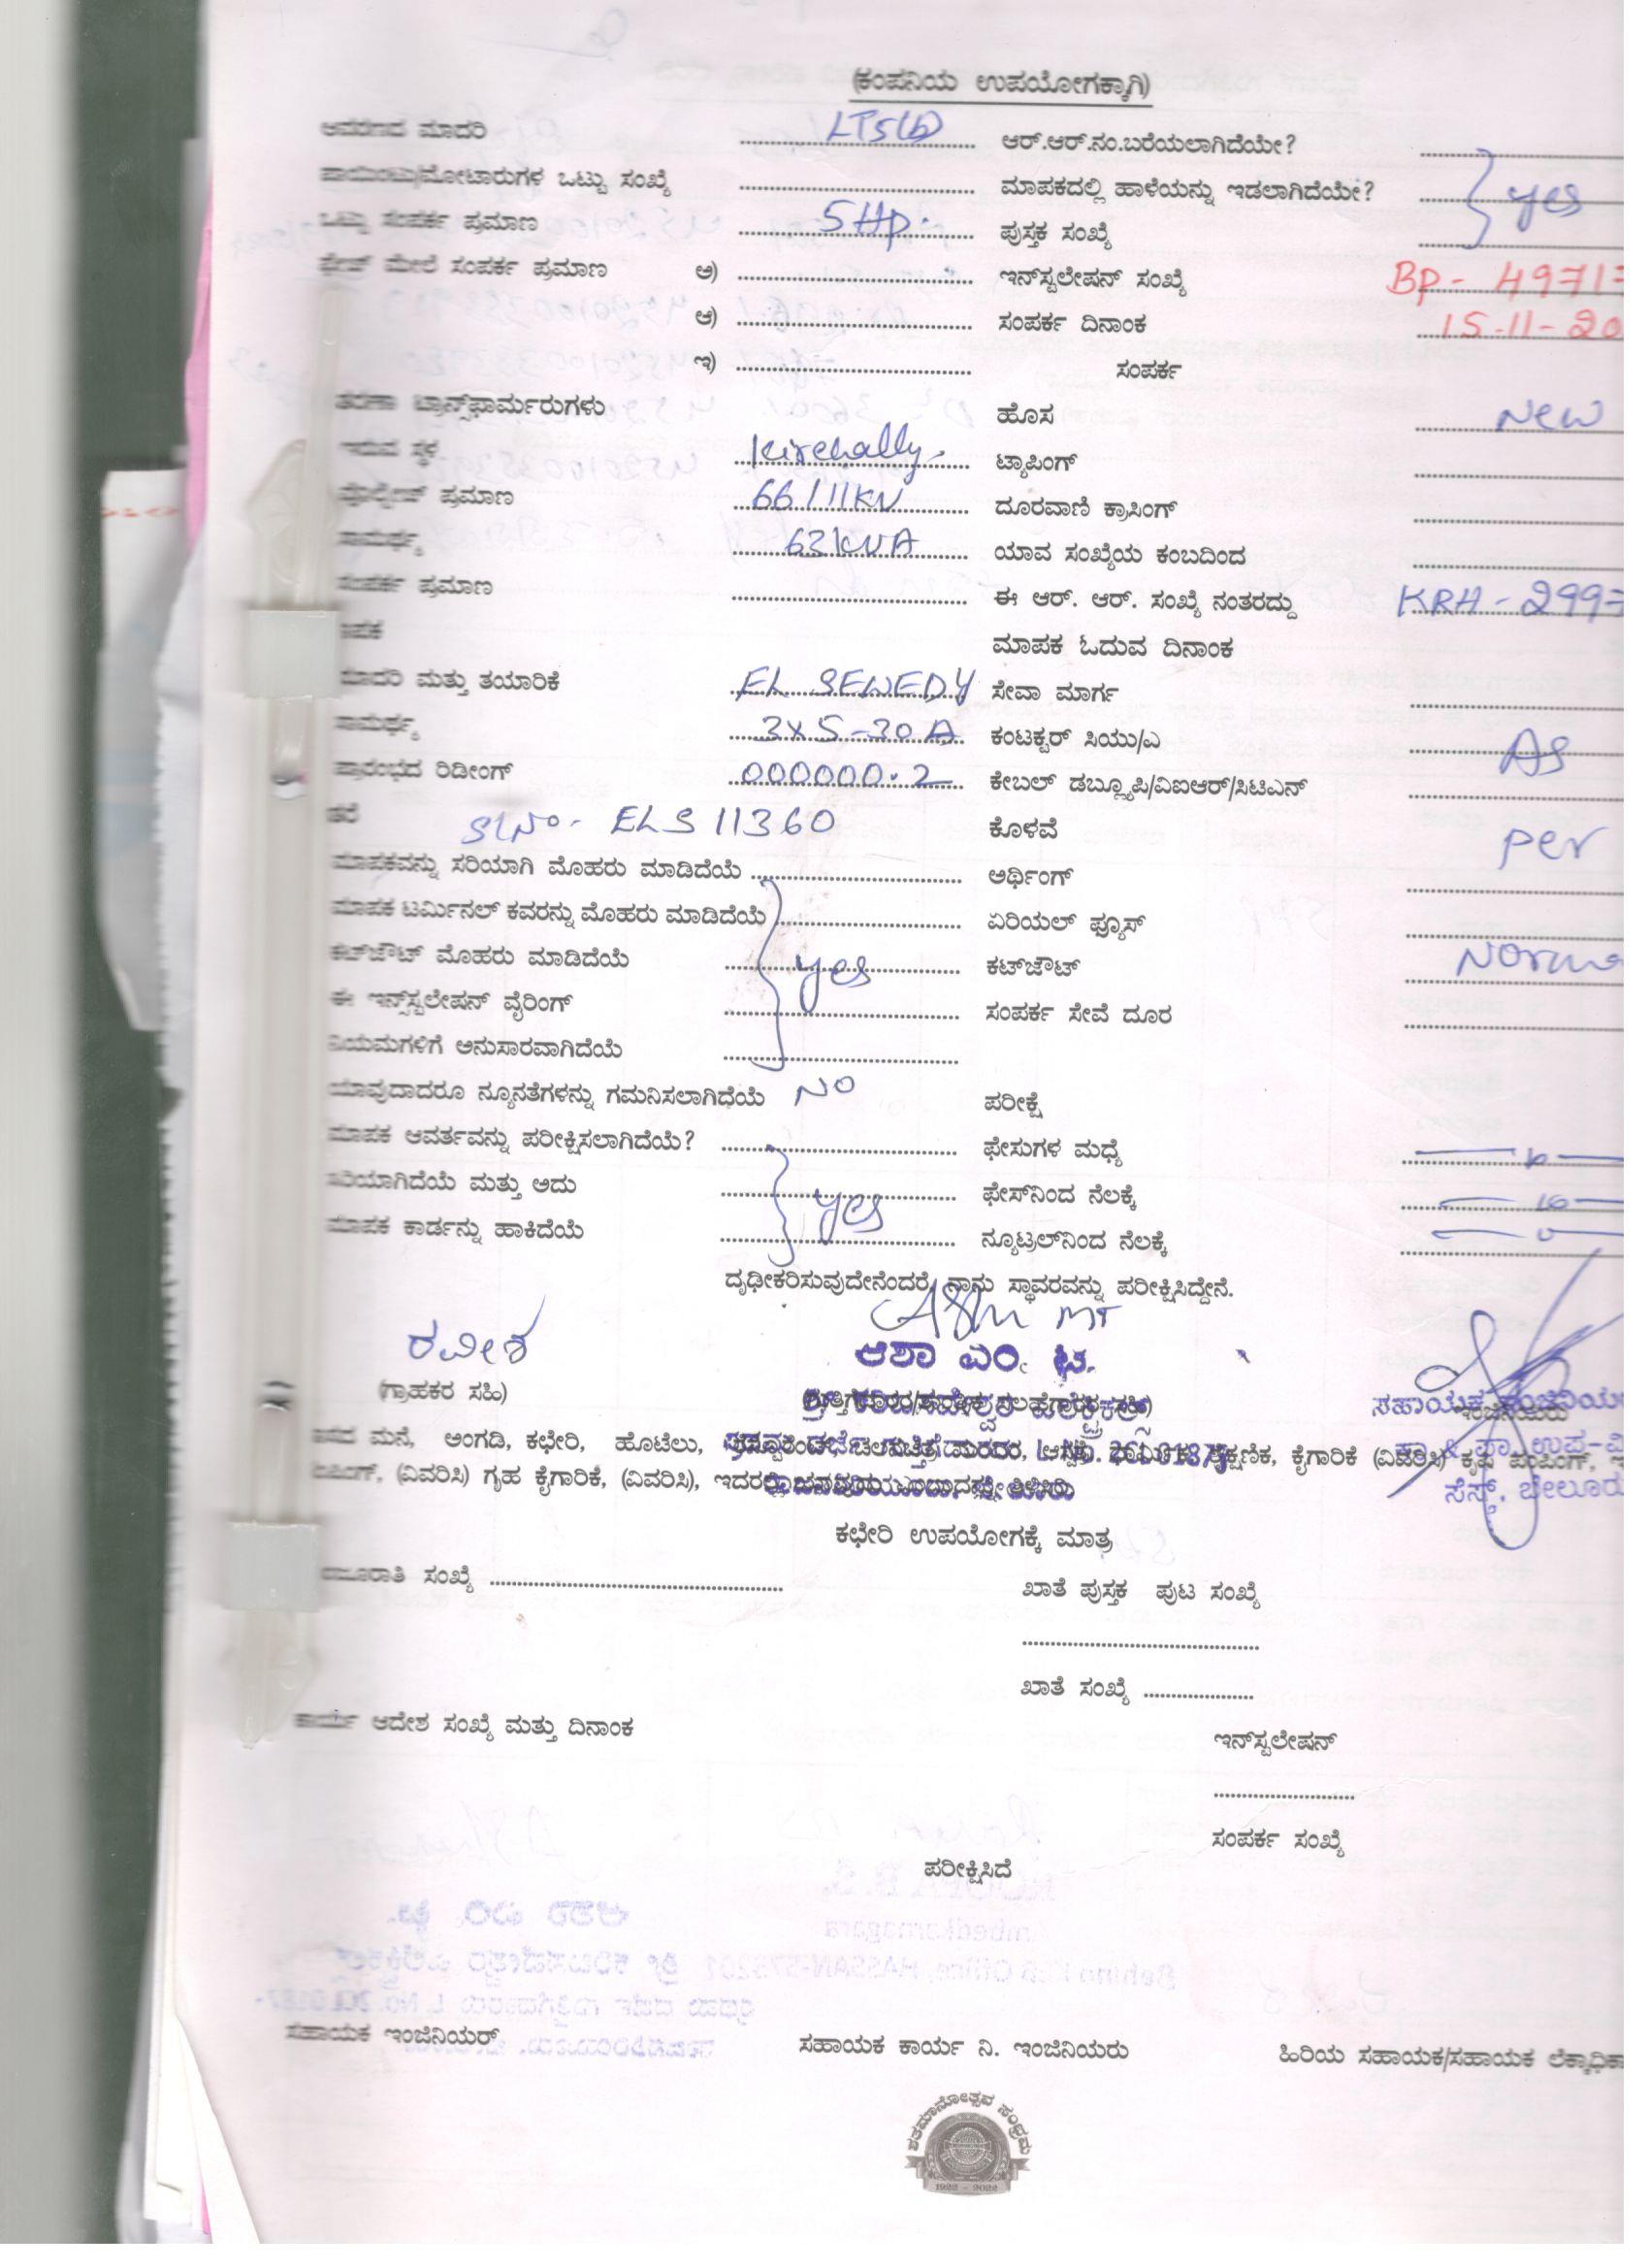 (ಕಂಪನಿಯ ಉಪಯೋಗಕ್ಕಾಗಿ)
ಆವರಣದ ಮಾದರಿ LT5(b) ಆರ್.ಆರ್.ನಂ.ಬರೆಯಲಾಗಿದೆಯೇ?
ಪಾಯಿಂಟು/ಮೋಟಾರುಗಳ ಒಟ್ಟು ಸಂಖ್ಯೆ ಮಾಪಕದಲ್ಲಿ ಹಾಳೆಯನ್ನು ಇಡಲಾಗಿದೆಯೇ? yes
ಒಟ್ಟು ಸಂಪರ್ಕ ಪ್ರಮಾಣ 5HP. ಪುಸ್ತಕ ಸಂಖ್ಯೆ
ಫೇಜ್ ಮೇಲೆ ಸಂಪರ್ಕ ಪ್ರಮಾಣ ಅ) ಇನ್‌ಸ್ಟಲೇಷನ್ ಸಂಖ್ಯೆ BP- 4971
ಆ) ಸಂಪರ್ಕ ದಿನಾಂಕ 15-11-20
ಇ) ಸಂಪರ್ಕ
ತರಣಾ ಟ್ರಾನ್ಸ್‌ಫಾರ್ಮರುಗಳು ಹೊಸ New
ಇರುವ ಸ್ಥಳ Kirehally ಟ್ಯಾಪಿಂಗ್
ವೋಲ್ಟೇಜ್ ಪ್ರಮಾಣ 66/11KV ದೂರವಾಣಿ ಕ್ರಾಸಿಂಗ್
ಸಾಮರ್ಥ್ಯ 63KVA ಯಾವ ಸಂಖ್ಯೆಯ ಕಂಬದಿಂದ
ಸಂಪರ್ಕ ಪ್ರಮಾಣ ಈ ಆರ್. ಆರ್. ಸಂಖ್ಯೆ ನಂತರದ್ದು KRH - 299
ಮಾಪಕ ಓದುವ ದಿನಾಂಕ
ಮಾದರಿ ಮತ್ತು ತಯಾರಿಕೆ EL SEWEDY ಸೇವಾ ಮಾರ್ಗ
ಸಾಮರ್ಥ್ಯ 3x5-30A ಕಂಟಕ್ಟರ್ ಸಿಯು/ಎ As
ಪ್ರಾರಂಭದ ರಿಡೀಂಗ್ 000000.2 ಕೇಬಲ್ ಡಬ್ಲ್ಯೂಪಿ/ವಿಐಆರ್/ಸಿಟಿಎನ್
Sl No- ELS11360 ಕೊಳವೆ per
ಮಾಪಕವನ್ನು ಸರಿಯಾಗಿ ಮೊಹರು ಮಾಡಿದೆಯೆ ಅರ್ಥಿಂಗ್
ಮಾಪಕ ಟರ್ಮಿನಲ್ ಕವರನ್ನು ಮೊಹರು ಮಾಡಿದೆಯೆ ಏರಿಯಲ್ ಫ್ಯೂಸ್
ಕಟ್‌ಔಟ್ ಮೊಹರು ಮಾಡಿದೆಯೆ yes ಕಟ್‌ಔಟ್
ಈ ಇನ್ಸ್‌ಸ್ಟಲೇಷನ್ ವೈರಿಂಗ್ ಸಂಪರ್ಕ ಸೇವೆ ದೂರ
ನಿಯಮಗಳಿಗೆ ಅನುಸಾರವಾಗಿದೆಯೆ
ಯಾವುದಾದರೂ ನ್ಯೂನತೆಗಳನ್ನು ಗಮನಿಸಲಾಗಿದೆಯೆ NO ಪರೀಕ್ಷೆ
ಮಾಪಕ ಆವರ್ತವನ್ನು ಪರೀಕ್ಷಿಸಲಾಗಿದೆಯೆ? ಫೇಸುಗಳ ಮಧ್ಯೆ
ಸರಿಯಾಗಿದೆಯೆ ಮತ್ತು ಅದು yes ಫೇಸ್‌ನಿಂದ ನೆಲಕ್ಕೆ
ಮಾಪಕ ಕಾರ್ಡನ್ನು ಹಾಕಿದೆಯೆ ನ್ಯೂಟ್ರಲ್‌ನಿಂದ ನೆಲಕ್ಕೆ
ದೃಢೀಕರಿಸುವುದೇನೆಂದರೆ, ನಾನು ಸ್ಥಾವರವನ್ನು ಪರೀಕ್ಷಿಸಿದ್ದೇನೆ.
ರವೀಶ
ಆಶಾ ಎಂ. ಟಿ.
(ಗ್ರಾಹಕರ ಸಹಿ) ಸಹಾಯಕ
ಮನೆ, ಅಂಗಡಿ, ಕಛೇರಿ, ಹೊಟೆಲು, ಕೈಗಾರಿಕೆ (ವಿವರಿಸಿ) ಕೃಷಿ ಪಂಪಿಂಗ್,
(ವಿವರಿಸಿ) ಗೃಹ ಕೈಗಾರಿಕೆ, (ವಿವರಿಸಿ), ಸೆಸ್ಕ್, ಬೇಲೂರು
ಕಛೇರಿ ಉಪಯೋಗಕ್ಕೆ ಮಾತ್ರ
ಸಂಖ್ಯೆ ಖಾತೆ ಪುಸ್ತಕ ಪುಟ ಸಂಖ್ಯೆ
ಖಾತೆ ಸಂಖ್ಯೆ
ಕಾರ್ಯ ಆದೇಶ ಸಂಖ್ಯೆ ಮತ್ತು ದಿನಾಂಕ
ಇನ್‌ಸ್ಟಲೇಷನ್
ಸಂಪರ್ಕ ಸಂಖ್ಯೆ
ಪರೀಕ್ಷಿಸಿದೆ
ಸಹಾಯಕ ಇಂಜಿನಿಯರ್ ಸಹಾಯಕ ಕಾರ್ಯ ನಿ. ಇಂಜಿನಿಯರು ಹಿರಿಯ ಸಹಾಯಕ/ಸಹಾಯಕ